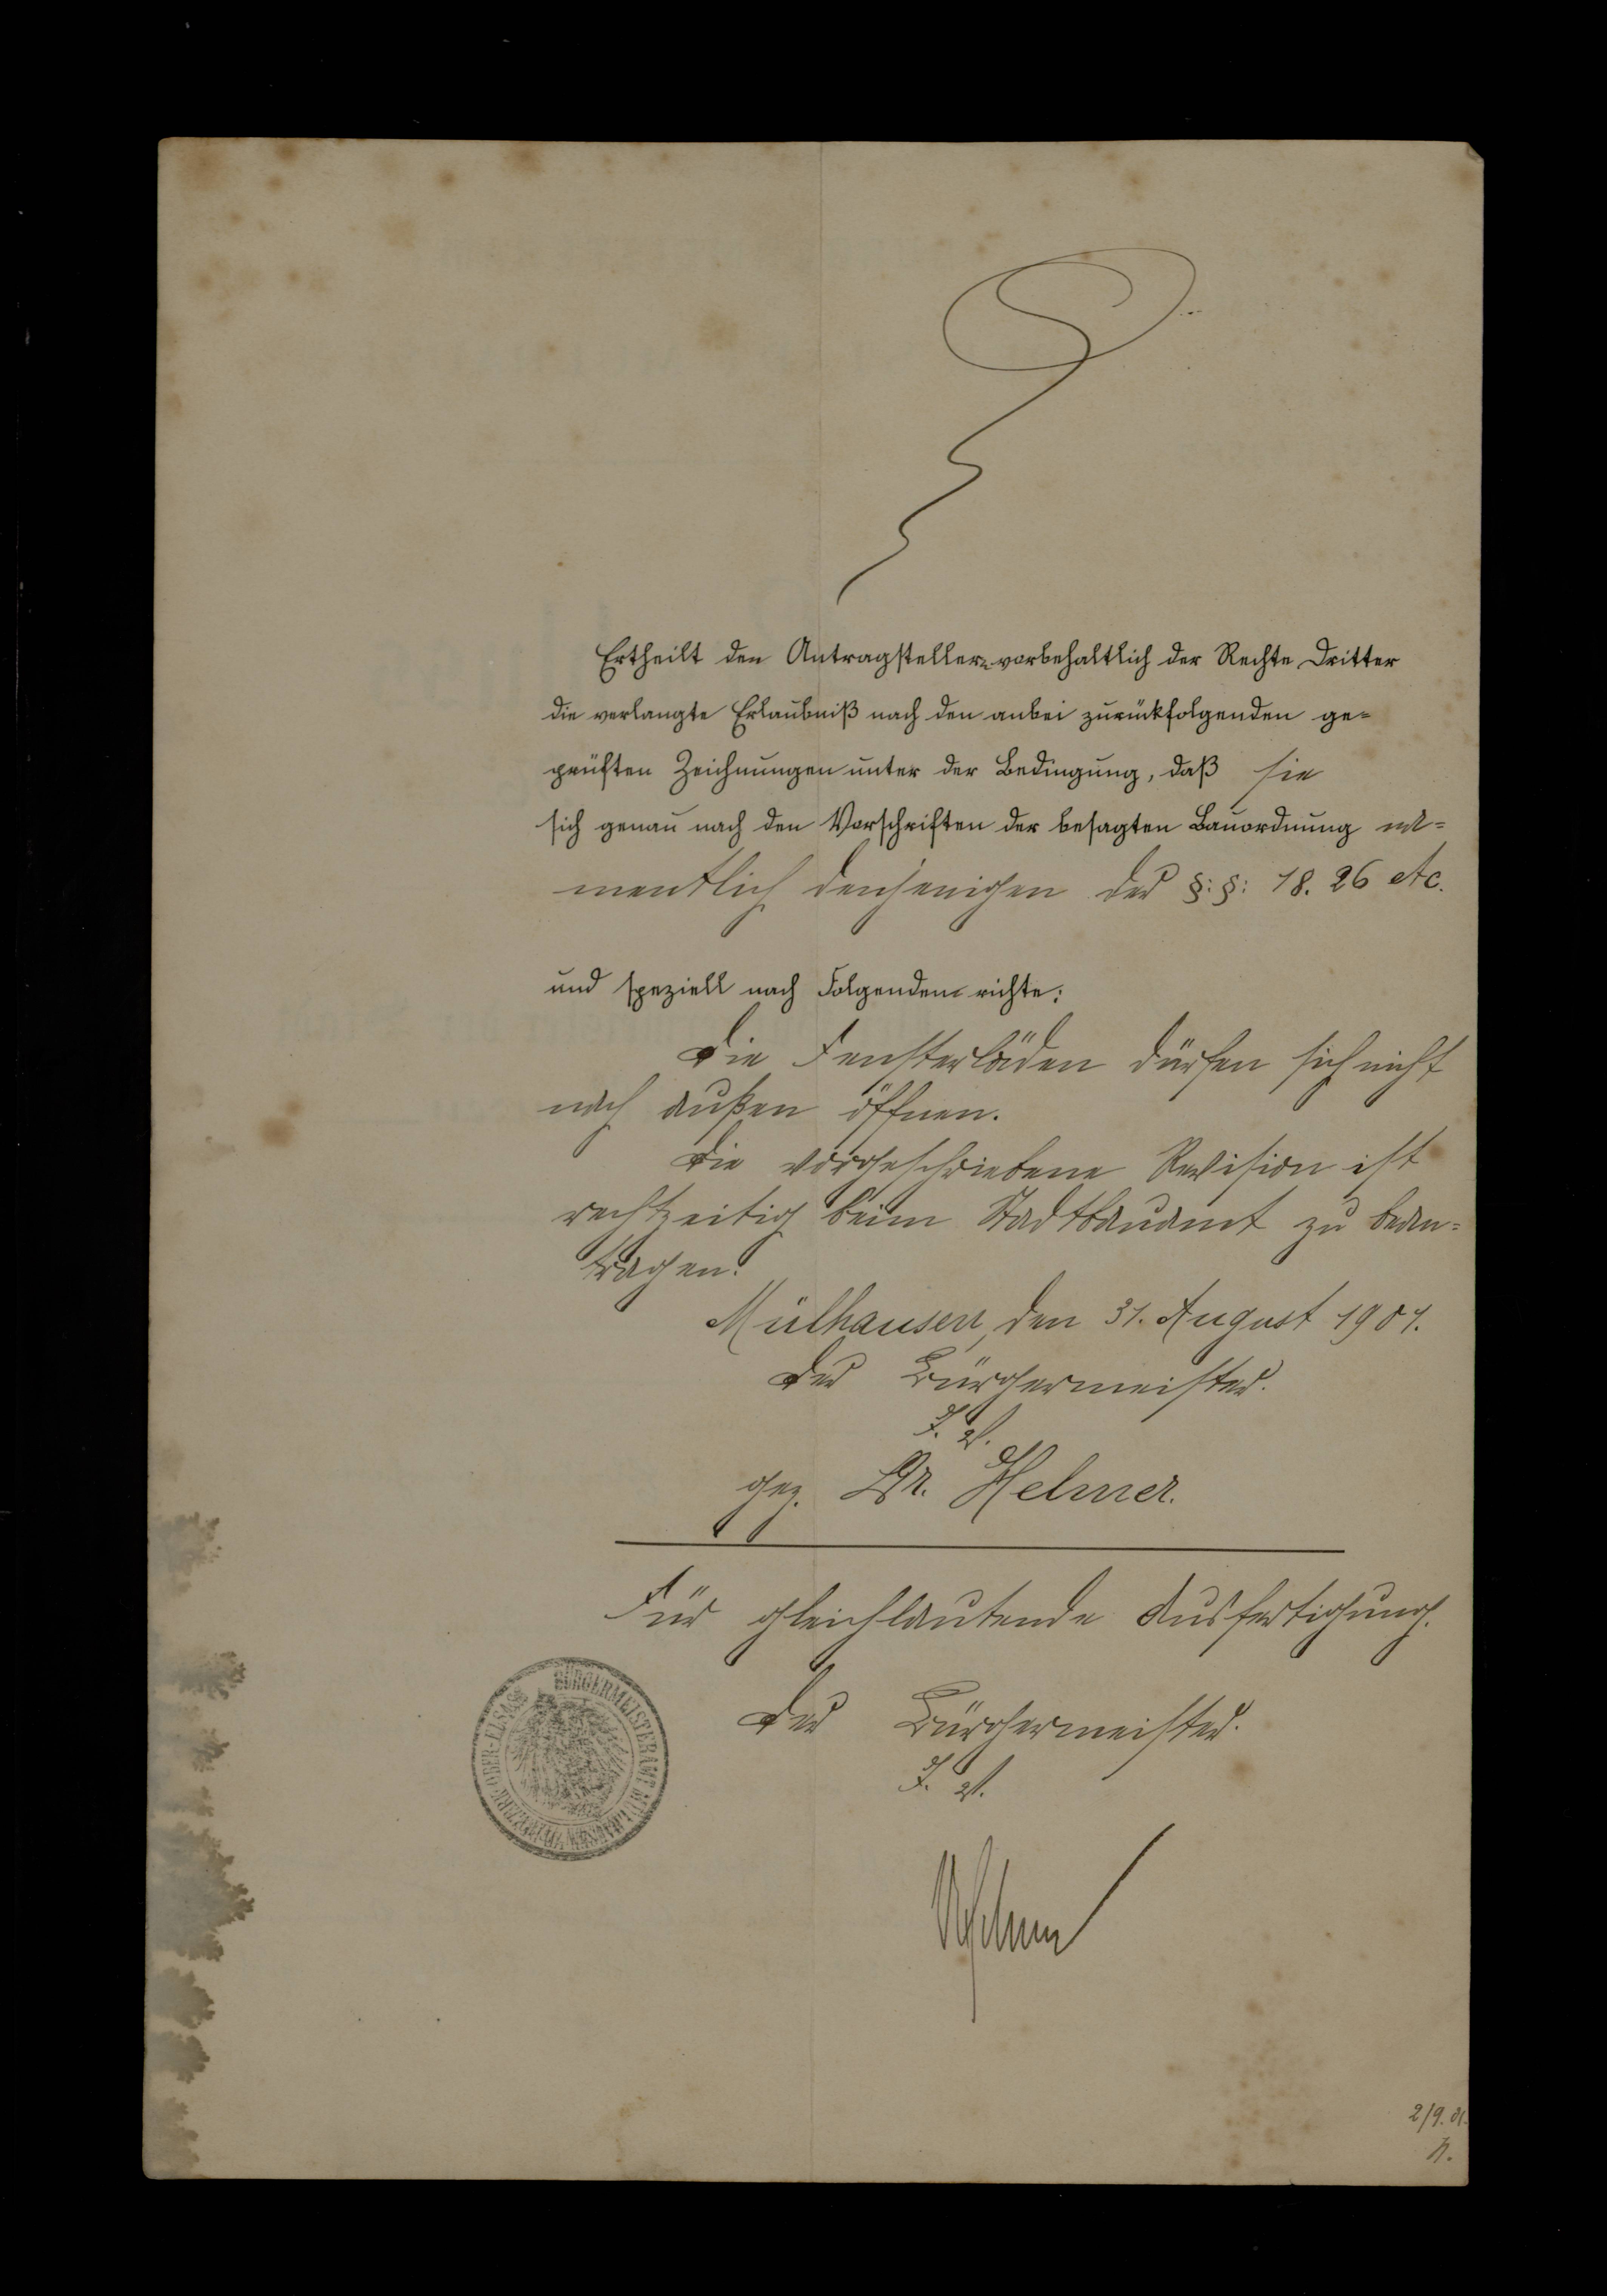 Ertheilt den Antragstellern vorbehaltlich der Rechte Dritter
die verlangte Erlaubniß nach den anbei zurückfolgenden ge=
prüften Zeichnungen unter der Bedingung, daß sie
sich genau nach den Vorschriften der besagten Bauordnung na=
mentlich denjenigen der §:§: 18. 26 etc.
und speziell nach Folgendem richte:
Die Fensterläden dürfen sich nicht
nach außen öffnen.
Die vorgeschriebene Revision ist
rechtzeitig beim Stadtbauamt zu bean=
tragen.
Mülhausen, den 31. August 1901.
Der Bürgermeister.
J. V.
gez. Dr. Helmer.
Für gleichlautende Ausfertigung.
Der Bürgermeister.
J. V.
BÜRGERMEISTERAMT MÜLHAUSEN BEZIRK OBER-ELSASS
2/9. 01.